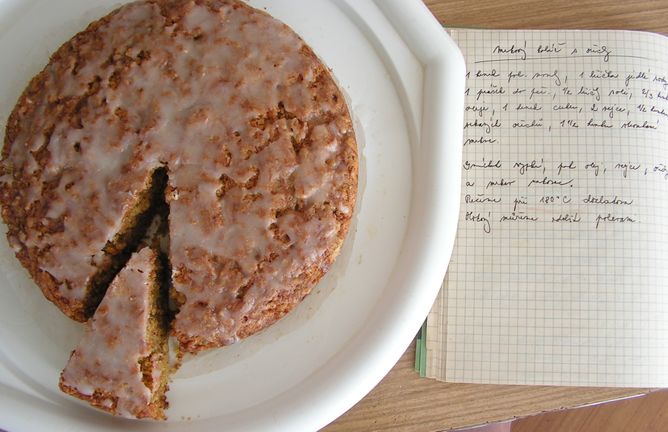 Mrkvový koláč s ořechy
1 hrnek pol. mouky, 1 lžička jedlé sody
1 prášek do peč., 1/2 lžičky soli, 2/3 hrnku
oleje, 1 hrnek cukru, 2 vejce, 1/2 hrnku
sekaných ořechů, 1 1/2 hrnku strouhané
mrkve.
sypké, pak olej, vejce, ořechy
a mrkev nakonec.
Pečeme při 180°C dozlatova
Hotový můžeme zdobit polevou.